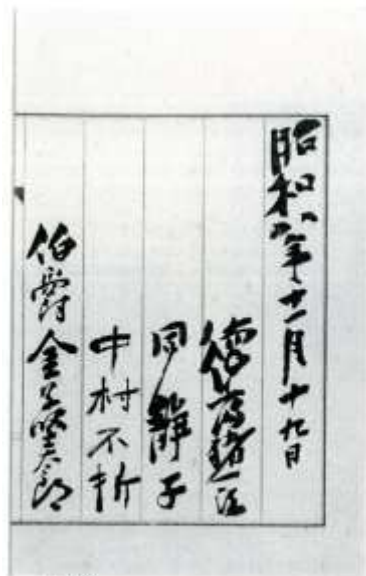 昭和八年十一月十九日
徳富猪一郎
同静子
中村不折
伯爵金子堅太郎